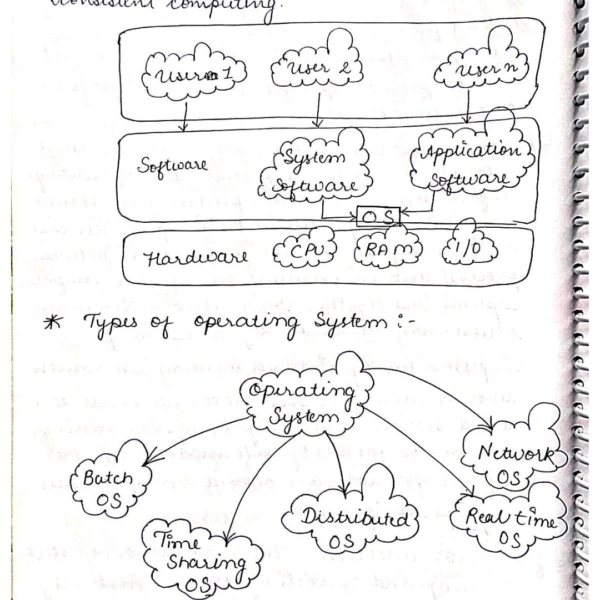 consistent computing.
User 1
User 2
User n
Software
System
Software
Application
Software
OS
Hardware
CPU
RAM
I/O
* Types of operating System :-
Operating
System
Batch
OS
Time
Sharing
OS
Distributed
OS
Real time
OS
Network
OS